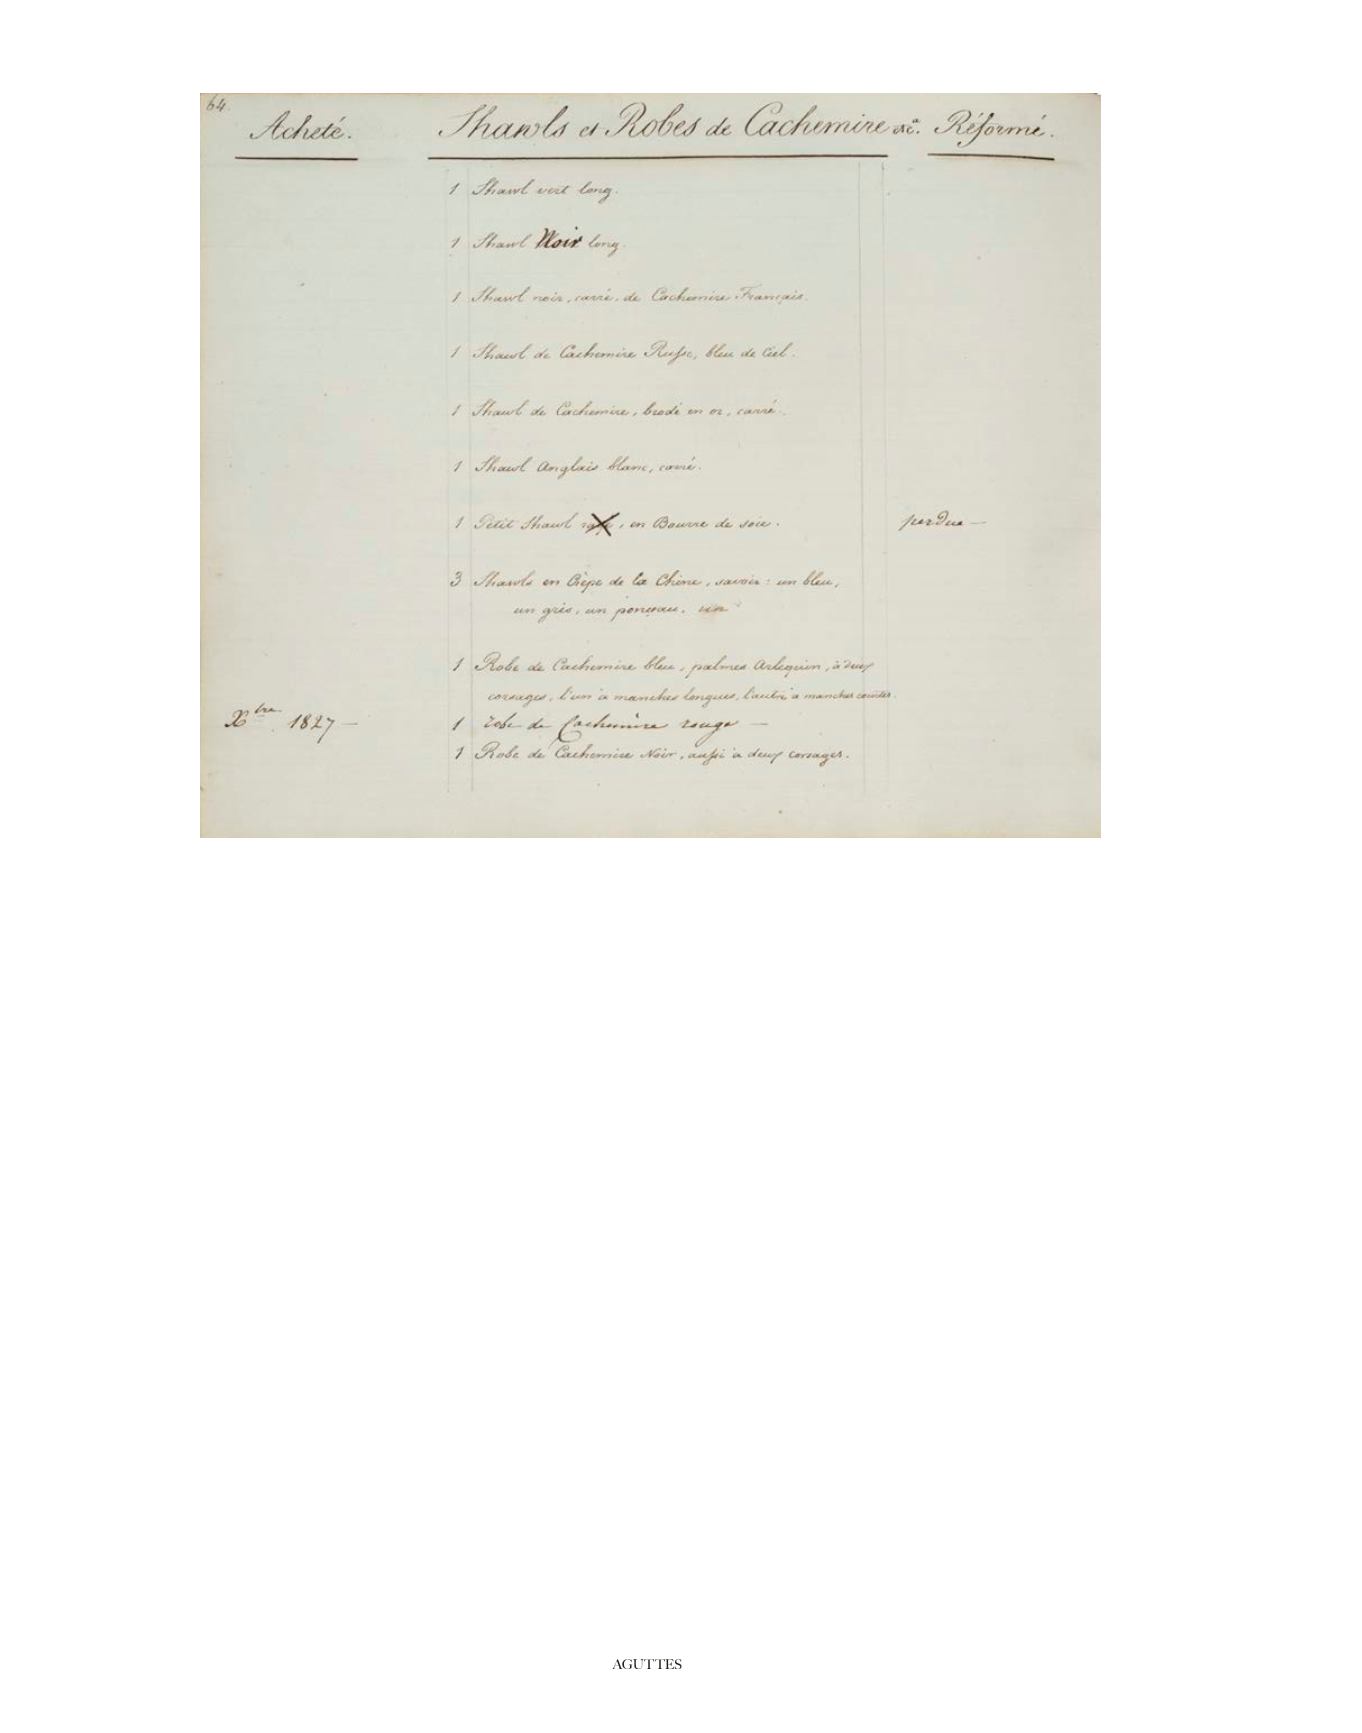 64.
Acheté. Shawls et Robes de Cachemire &ca. Réformé.
1 Shawl vert long.
1 Shawl Noir long.
1 Shawl noir, carré, de Cachemire Français.
1 Shawl de Cachemire Russe, bleu de Ciel.
1 Shawl de Cachemire, brodé en or, carré.
1 Shawl Anglais blanc, carré.
1 Petit Shawl , en Bourre de soie. perdue —
3 Shawls en Crèpe de la Chine, savoir : un bleu,
un gris, un ponceau. un
1 Robe de Cachemire bleu, palmes Arlequin, à deux
corsages, l'un à manches longues, l'autre à manches courtes.
Xbre. 1827 — 1 robe de Cachemire rouge —
1 Robe de Cachemire Noir, aussi à deux corsages.
AGUTTES